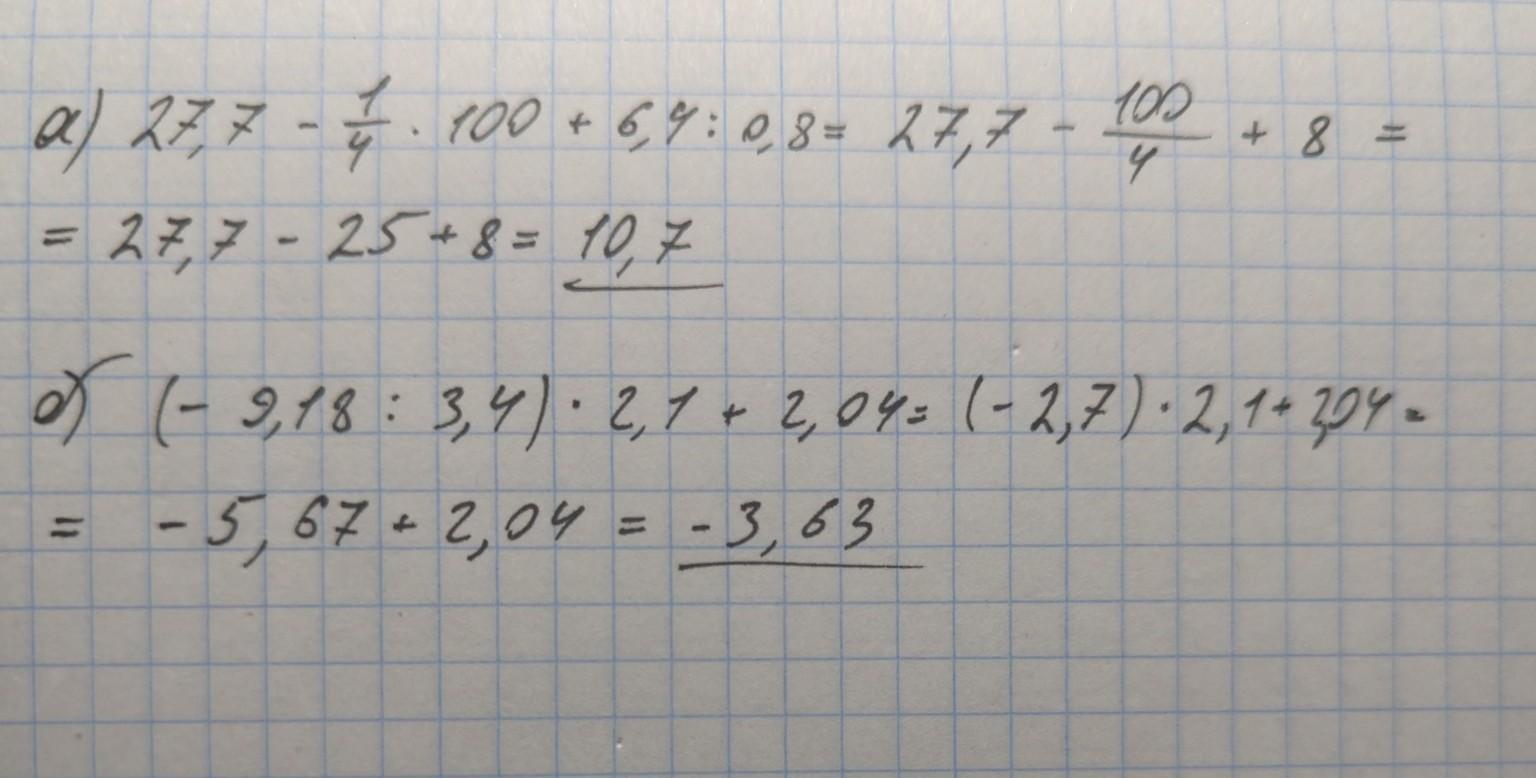 а) 27,7 - 1/4 · 100 + 6,4 : 0,8 = 27,7 - 100/4 + 8 =
= 27,7 - 25 + 8 = 10,7
б) (- 9,18 : 3,4) · 2,1 + 2,04 = (- 2,7) · 2,1 + 2,04 =
= - 5,67 + 2,04 = - 3,63